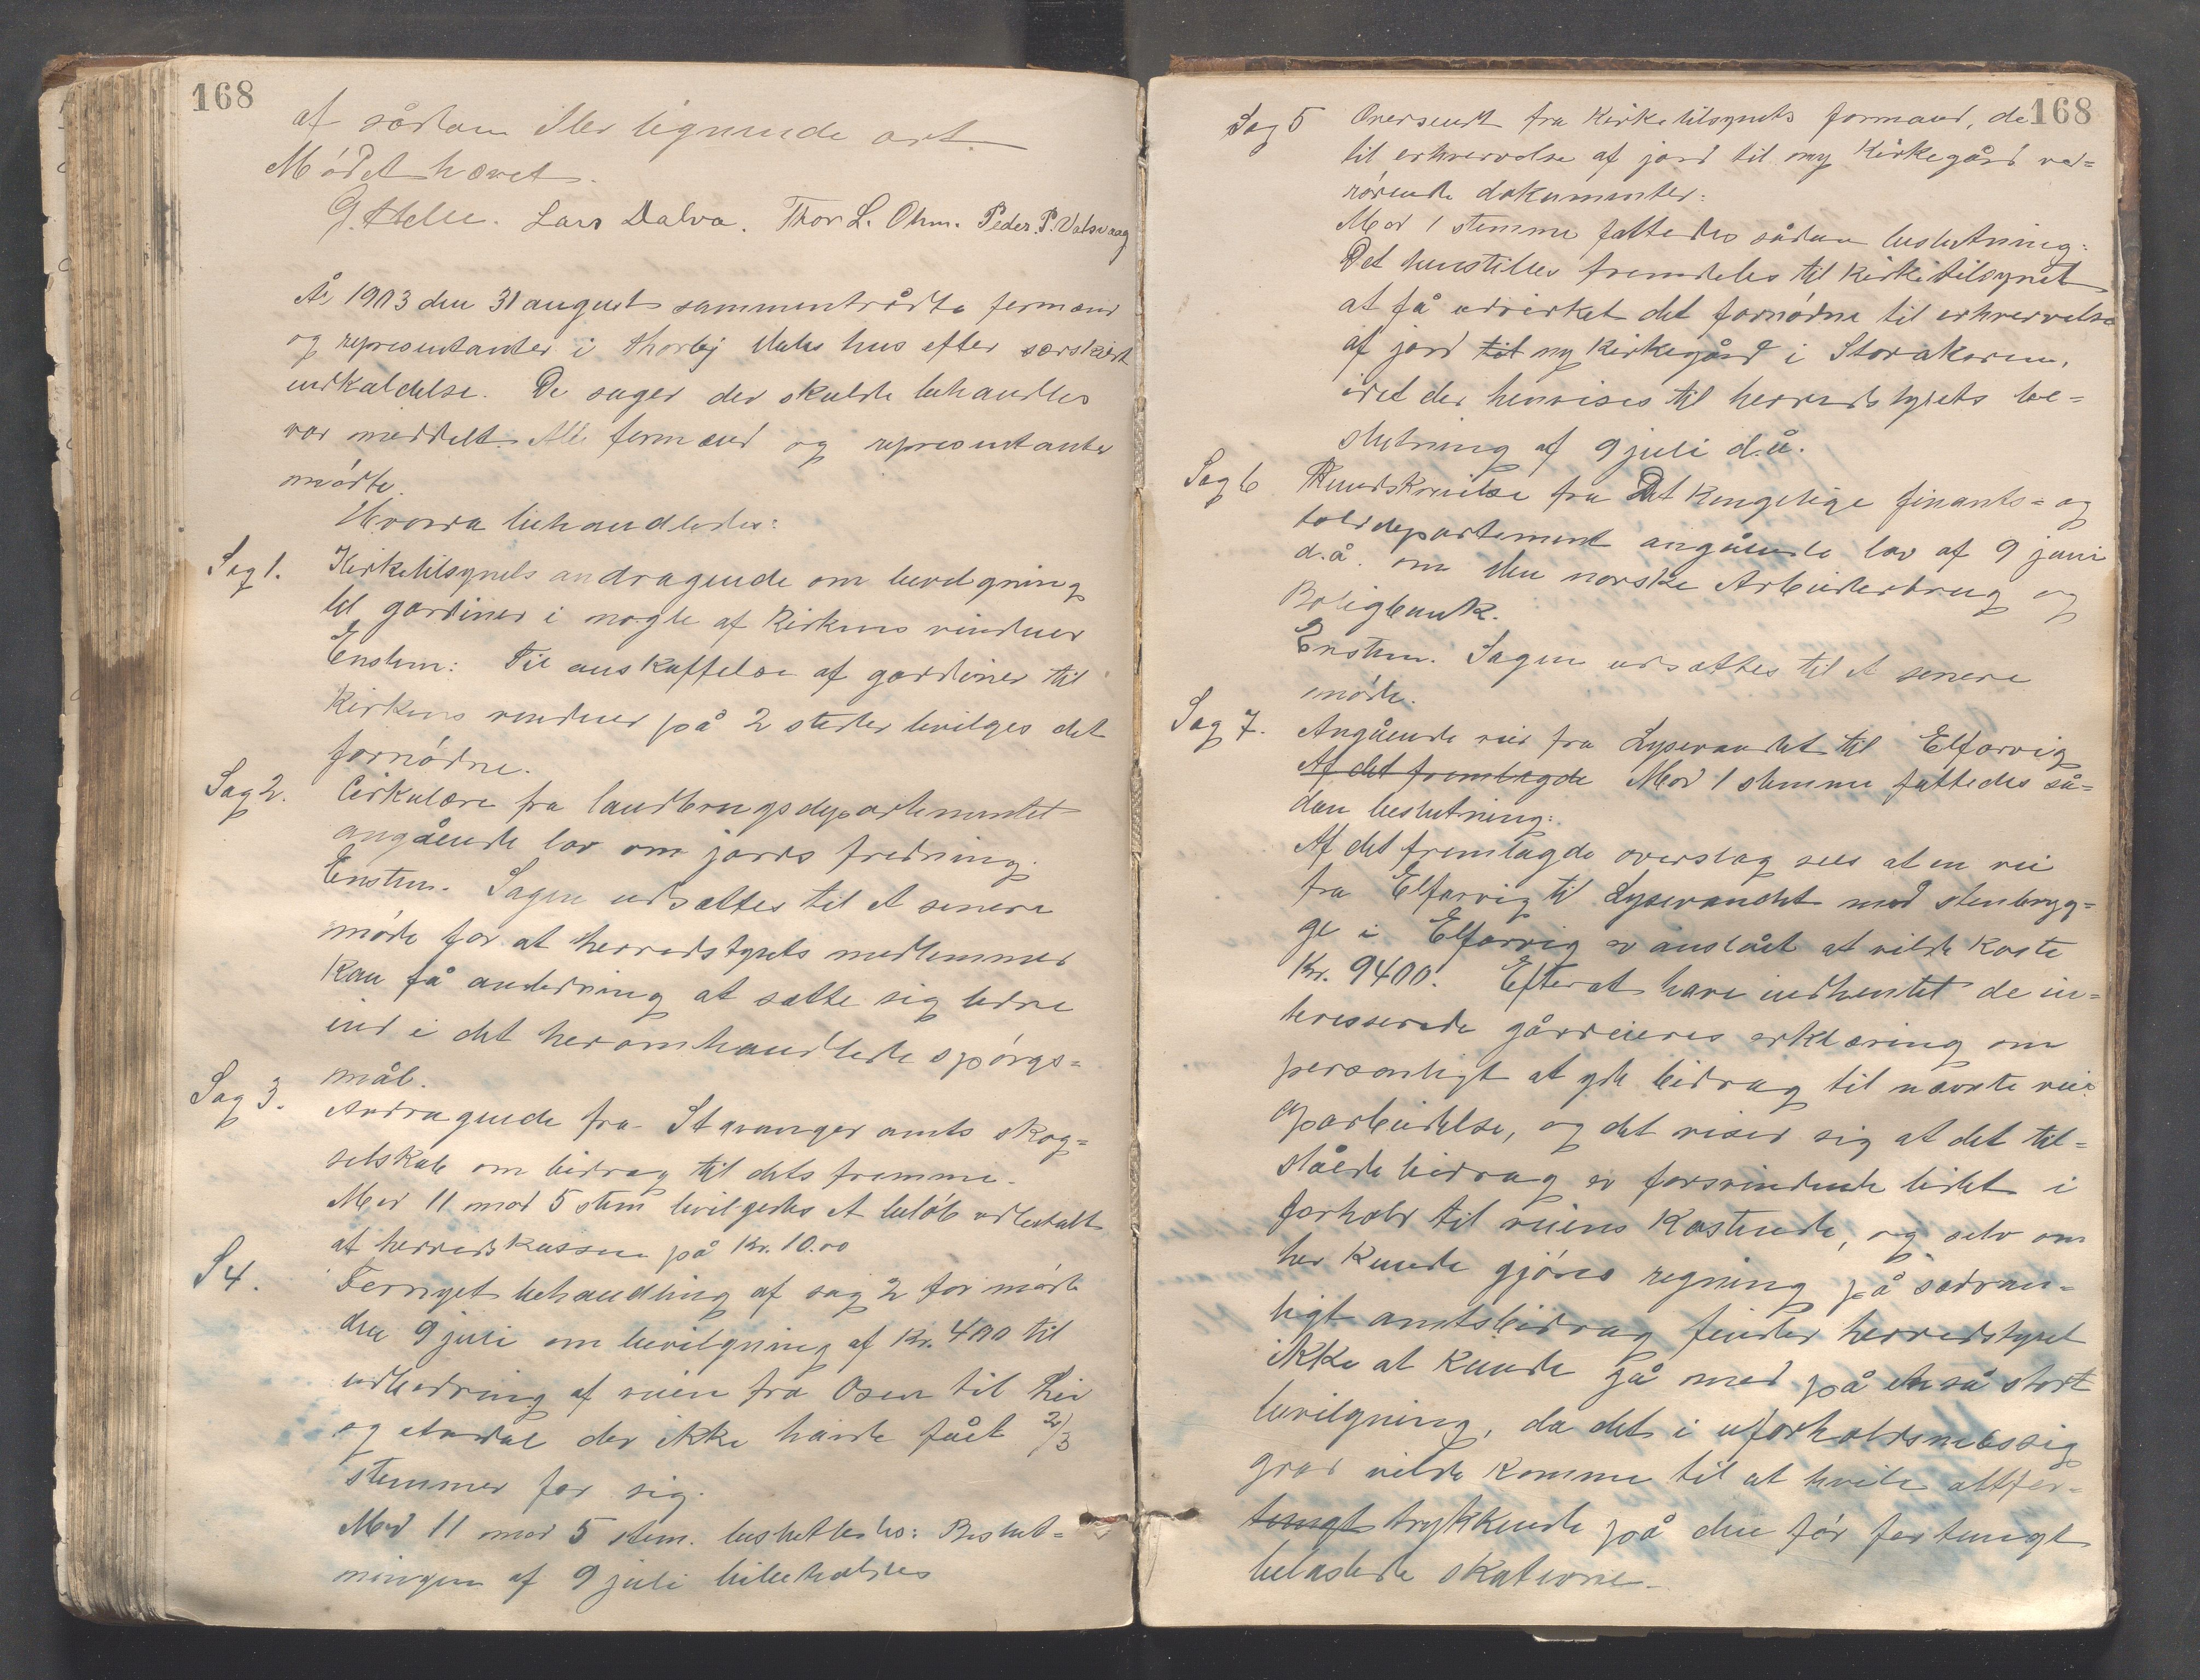 168
af sådan eller lignende art.
Mødet hævet.
G. Helle. Lars Dalva. Thor L. Ohm. Peder. P. Valsvaag
År 1903 den 31 august sammentrådte formænd
og repræsentanter i Thorbj Meles hus efter særskilt
indkaldelse. De sager der skulde behandles
var meddelt. Alle formænd og repræsentanter
mødte.
Hvorpa behandledes:
Sag 1. Kirketilsynets andragende om bevilgning
til gardiner i nogle af Kirkens vinduer
Enstem: Til anskaffelse af gardiner til
Kirkens vinduer på 2 steder bevilges det
fornødne.
Sag 2. Cirkulære fra landbrugsdepartementet
angående lov om jords fredning.
Enstem. Sagen udsættes til et senere
møde for at herredstyrets medlemmer
kan få anledning at sætte sig bedre
ind i det heromhandlede spørgs=
mål.
Sag 3. Andragende fra Stavanger amts skog=
selskab om bidrag til dets fremme.
Med 11 mod 5 stem bevilgedes et beløb udbetalt
af herredskassen på Kr. 10.00
S 4. Fornyet behandling af sag 2 for møde
den 9 juli om bevilgning af Kr. 400 til
udbedring af veien fra Osen til Lei
og Aadal der ikke havde fået 2/3
stemmer for sig.
Med 11 mod 5 stem. besluttedes: Beslut=
ningen af 9 juli bibeholdes
168
Sag 5 Oversendt fra Kirketilsynets formand, de
til erhvervelse af jord til ny Kirkegård ved=
rørende dokumenter:
Mod 1 stemme fattedes sådan beslutning:
Det henstilles fremdeles til Kirketilsynet
at få udvirket det fornødne til erhvervelse
af jord til ny Kirkegård i Storakeren,
idet der henvises til herredstyrets be=
slutning af 9 juli d.å.
Sag 6 Rundskrivelse fra Det Kongelige finants= og
tolddepartement angående lov af 9 juni
d.å. om den norske Arbeiderbrug og
Boligbank.
Enstem. Sagen udsættes til et senere
møde.
Sag 7. Angående vei fra Lysevandet til Elfarvig
Af det fremlagde Mod 1 stemme fattedes så=
dan beslutning:
Af det fremlagde overslag sees at en vei
fra Elfarvig til Lysevandet med stenbryg=
ge i Elfarvig er anslået at vilde koste
Kr. 9400. Efter at have indhentet de in=
teresserede gårdeieres erklæring om
personligt at yde bidrag til nævnte vei=
oparbeidelse, og det viser sig at det til=
ståede bidrag er forsvindende lidet i
forhold til veiens Kostende, og selv om
her kunde gjøres regning på sædvan=
ligt amtsbidrag finder herredstyret
ikke at kunde gå med på en så stort
bevilgning, da det i uforholdsmæssig
grad vilde komme til at hvile altfor=
tungt trykkende på den før for tungt
belastede skatevne.